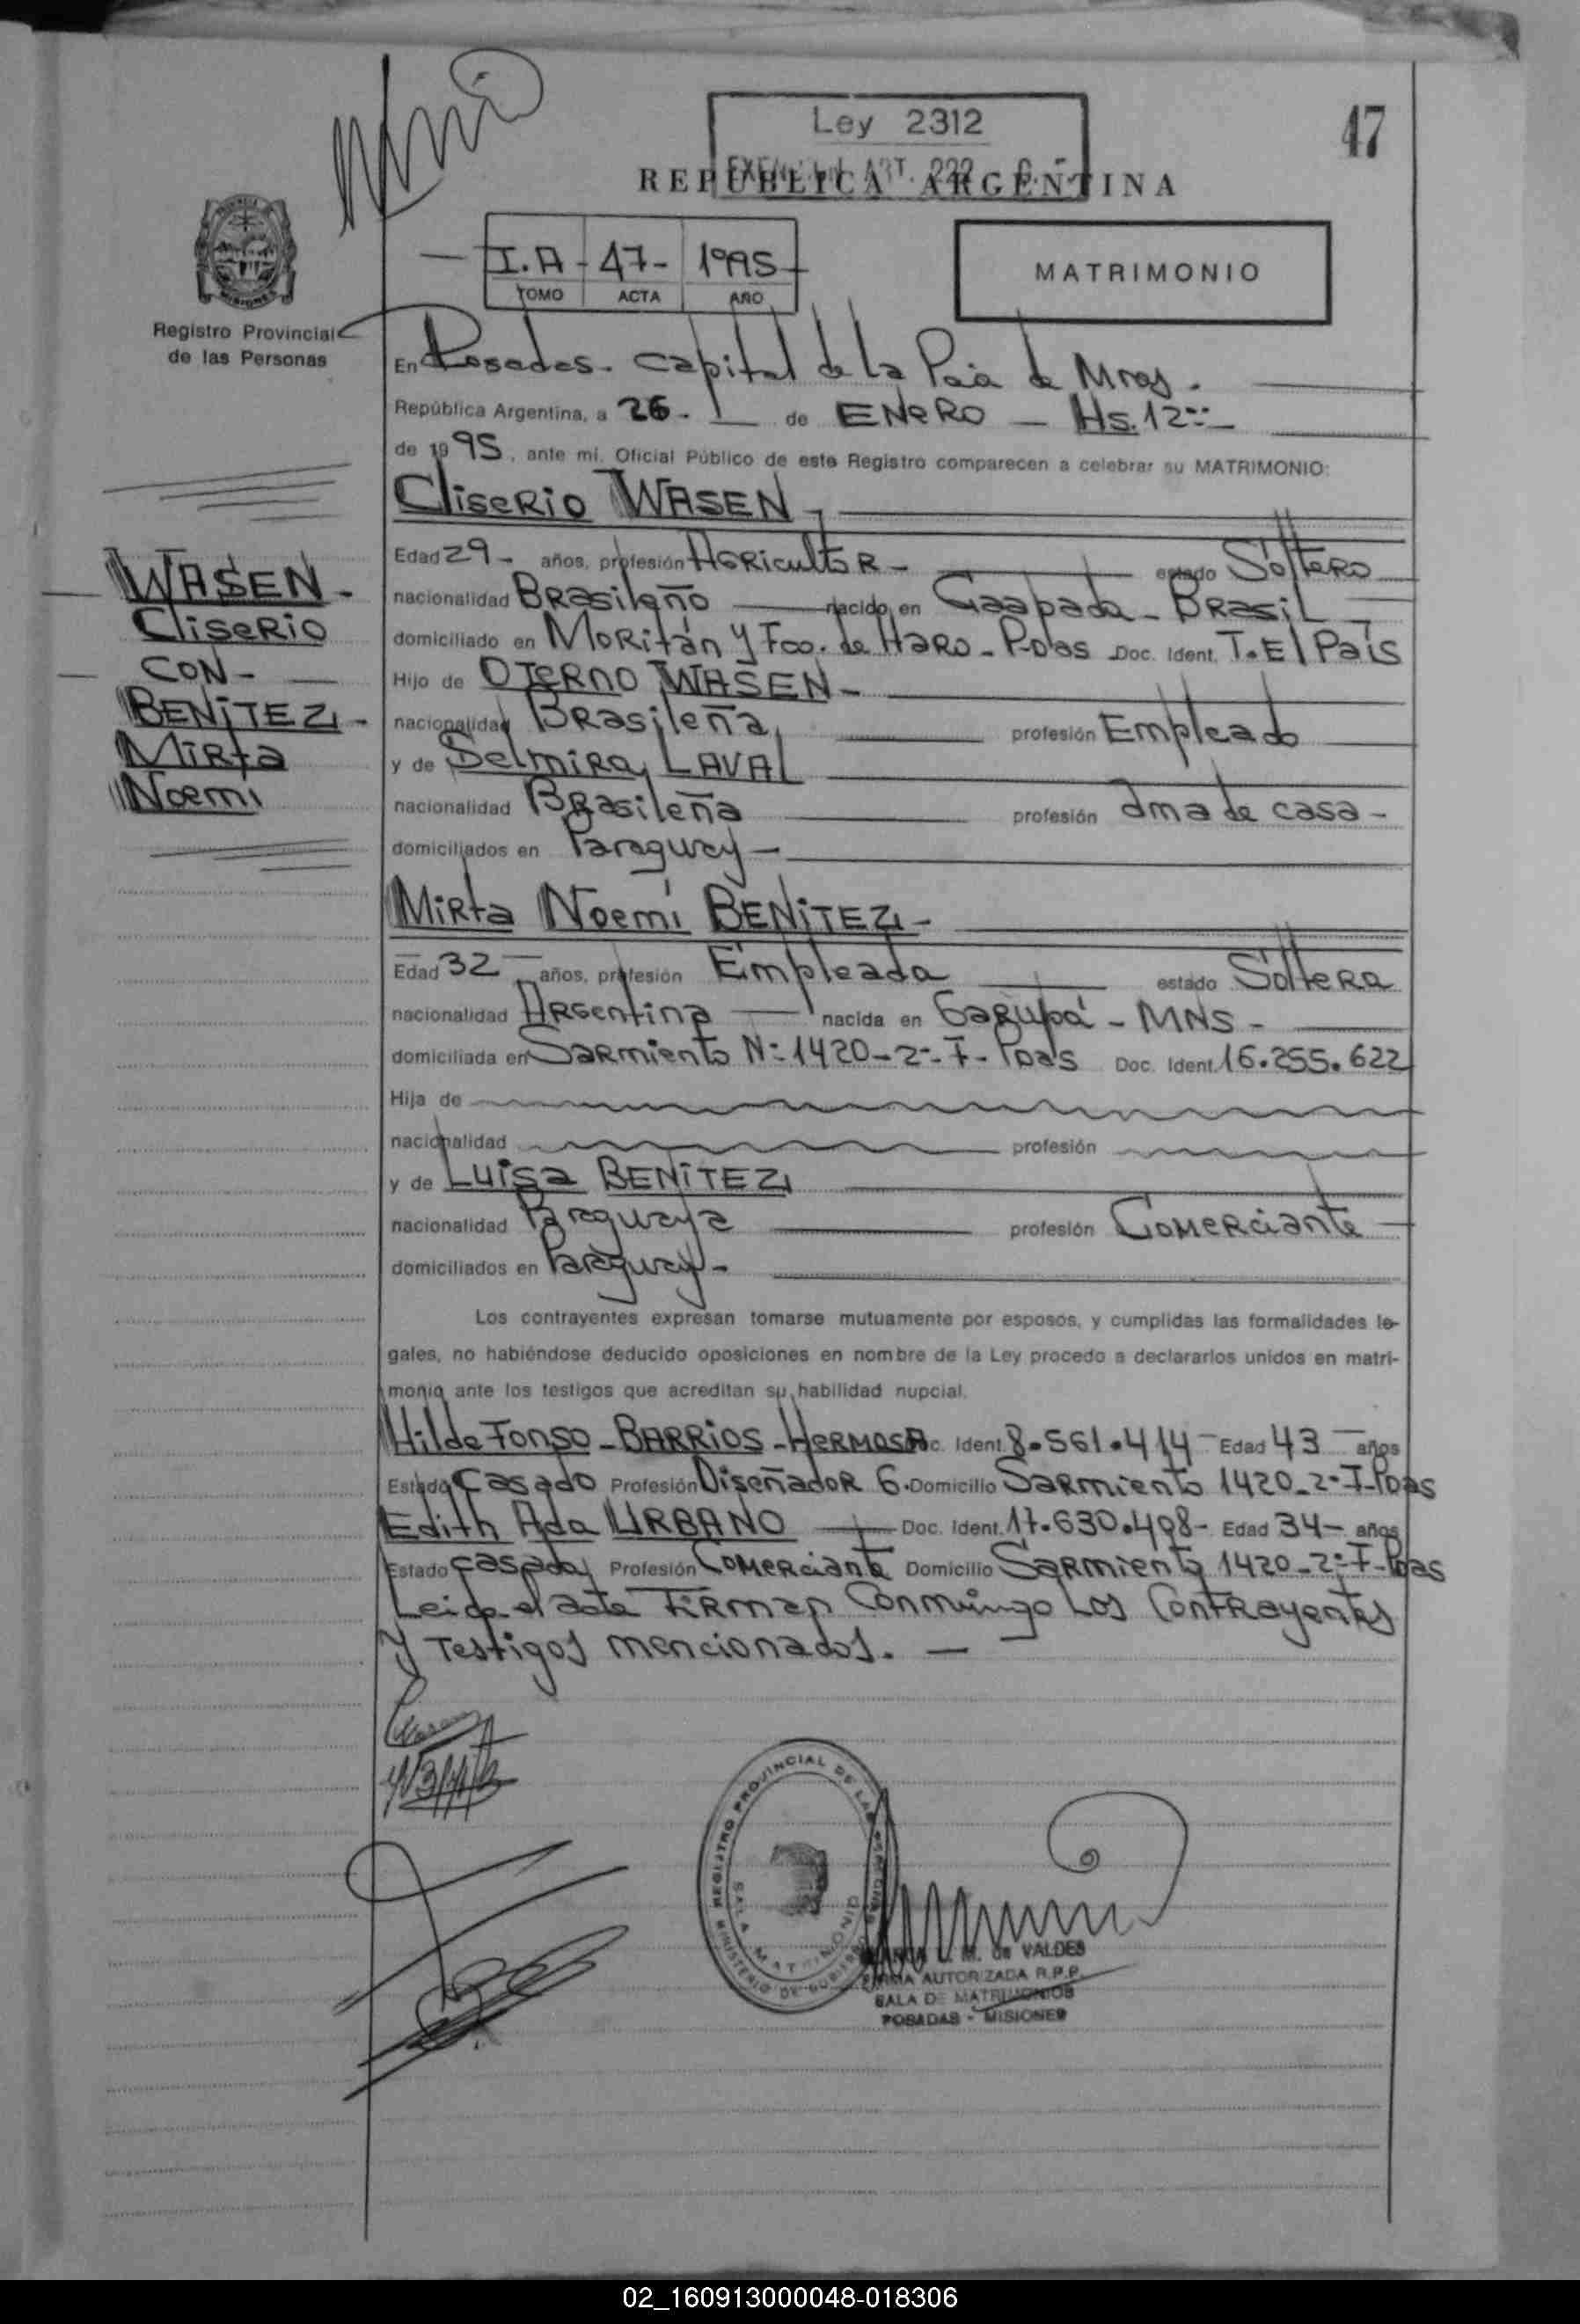 Ley 2312
47
REPUBLICA ARGENTINA
I.A - 47 - 1995
TOMO ACTA AÑO
MATRIMONIO
Registro Provincial
de las Personas
En Posadas - Capital de la Pcia de Mnes.
República Argentina, a 26 - de ENERO - Hs. 12
de 1995, ante mí, Oficial Público de este Registro comparecen a celebrar su MATRIMONIO:
Cliserio WASEN
Edad 29 - años, profesión AGRicultoR - estado Soltero
nacionalidad BRasileño nacido en Gaapada - BRASIL
domiciliado en MoRitán y Fco. de HaRo - P-Das Doc. Ident. T. El País
Hijo de OTERNO WASEN -
nacionalidad BRasileña profesión Empleado
y de Selmira LAVAL
nacionalidad BRasileña profesión ama de casa -
domiciliados en Paraguay -
WASEN -
Cliserio
CON -
BENITEZ -
MiRta
Noemi
MiRta Noemí BENITEZ -
Edad 32 años, profesión Empleada estado SolteRa
nacionalidad ARGentina nacida en GaRupá - MNS -
domiciliada en SaRmiento Nº 1420 - 2º - F - Pdas Doc. Ident. 16.255.622
Hija de
nacionalidad profesión
y de Luisa BENITEZ
nacionalidad Paraguaya profesión Comerciante
domiciliados en Paraguay -
Los contrayentes expresan tomarse mutuamente por esposos, y cumplidas las formalidades le-
gales, no habiéndose deducido oposiciones en nombre de la Ley procedo a declararlos unidos en matri-
monio ante los testigos que acreditan su habilidad nupcial.
HildeFonso - BARRIOS - HERMOSA Doc. Ident. 8.561.414 - Edad 43 años
Estado Casado Profesión DiseñadoR G. Domicilio SaRmiento 1420 - 2º - F - Pdas
Edith Ada URBANO Doc. Ident. 17.630.498 - Edad 34 - años
Estado casada Profesión Comerciante Domicilio SaRmiento 1420 - 2º - F - Pdas
Leida el acta FiRman Conmingo Los ContRayentes
y Testigos mencionados. -
REGISTRO PROVINCIAL DE LAS PERSONAS
SALA MATRIMONIO
MINISTERIO DE GOBIERNO
L. M. de VALDES
FIRMA AUTORIZADA R.P.P.
SALA DE MATRIMONIOS
POSADAS - MISIONES
02_160913000048-018306